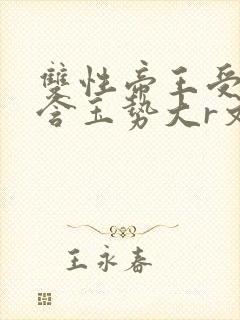 雙性帝王受
含玉势大r文
王永春